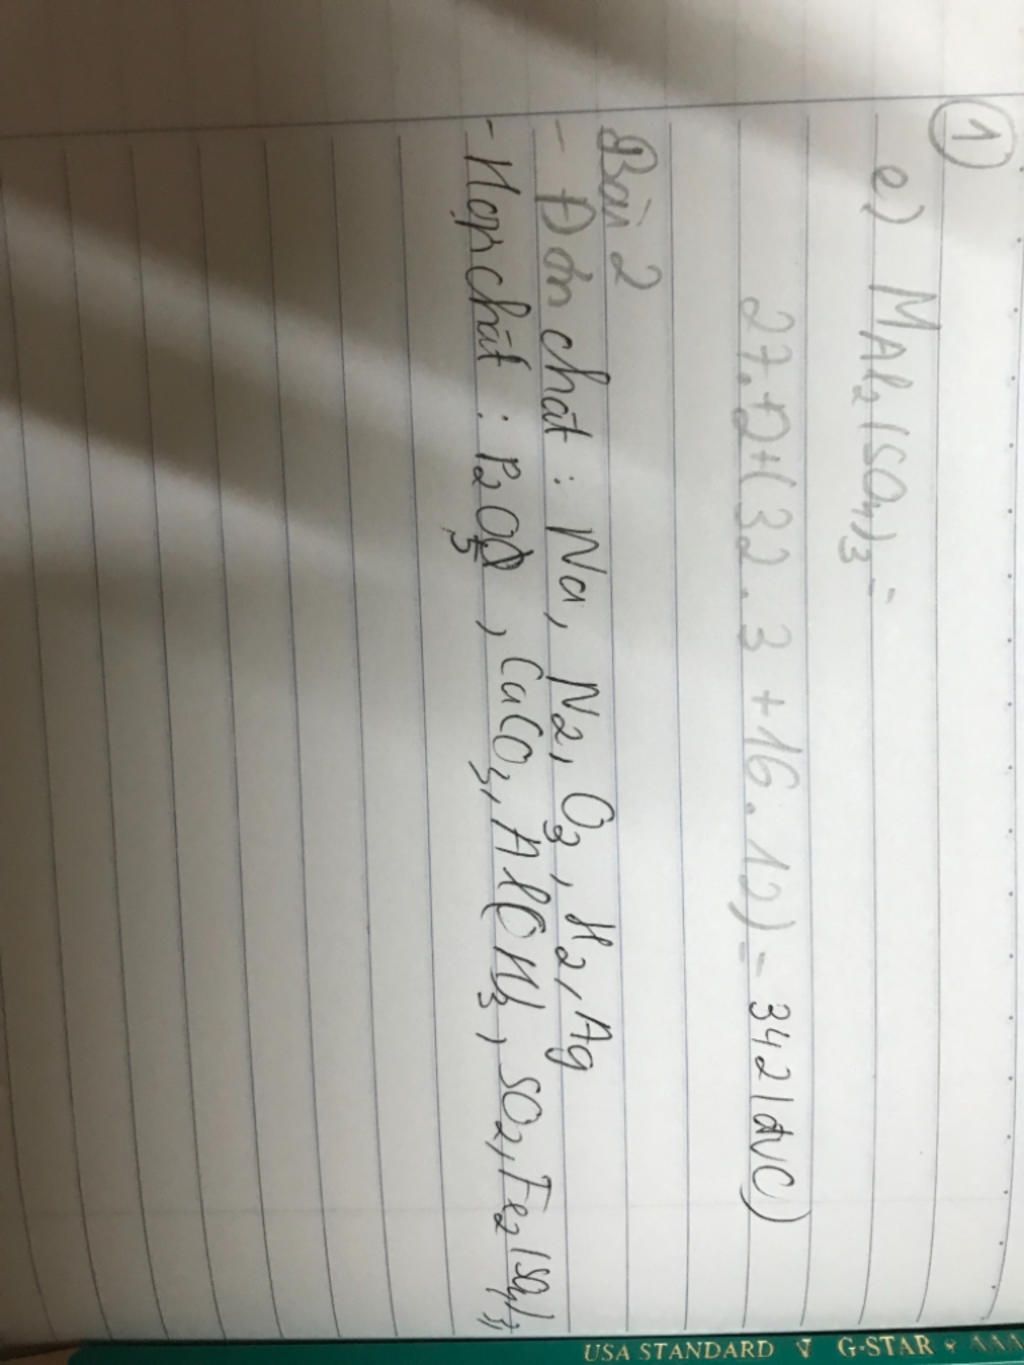 ①
e) MAl2(SO4)3 =
27.2+(32.3+16.12) = 342(đvC)
Bài 2
- Đơn chất : Na, N2, O3, H2, Ag
- Hợp chất : P2O5, CaCO3, Al(OH)3, SO2, Fe2(SO4)3
USA STANDARD G-STAR AAA